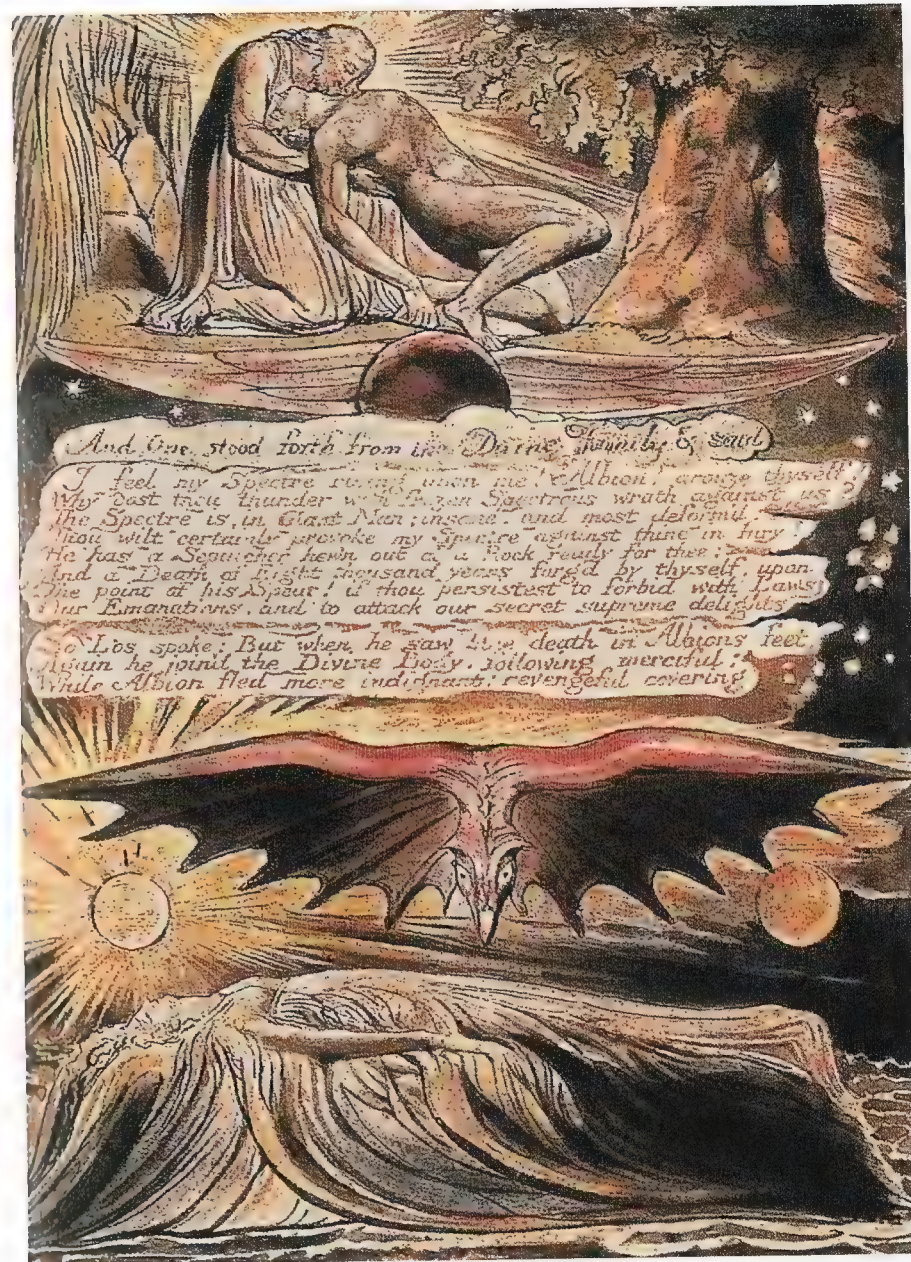 And One stood forth from the Divine Family & said
I feel my Spectre rising upon me! Albion! arouze thyself!
Why dost thou thunder with frozen Spectrous wrath against us?
The Spectre is, in Giant Man; insane, and most deform'd.
Thou wilt certainly provoke my Spectre against thine in fury!
He has a Sepulcher hewn out of a Rock ready for thee:
And a Death of Eight thousand years forg'd by thyself, upon
The point of his Spear! if thou persistest to forbid with Laws
Our Emanations, and to attack our secret supreme delights
So Los spoke: But when he saw death in Albions feet,
Again he join'd the Divine Body, following merciful;
While Albion fled more indignant: revengeful covering